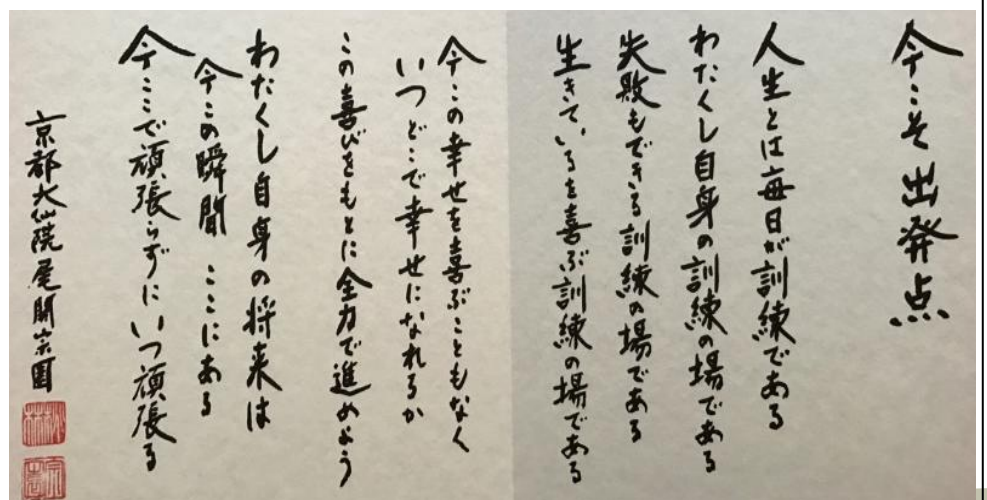 今こそ出発点
人生とは毎日が訓練である
わたくし自身の訓練の場である
失敗もできる訓練の場である
生きているを喜ぶ訓練の場である
今この幸せを喜ぶこともなく
いつどこで幸せになれるか
この喜びをもとに全力で進めよう
わたくし自身の将来は
今この瞬間 ここにある
今ここで頑張らずにいつ頑張る
京都大仙院尾関宗園